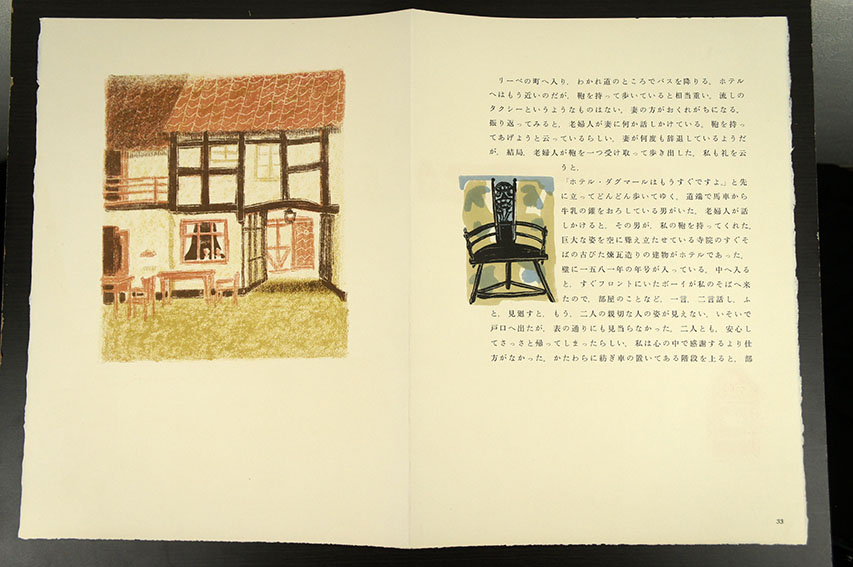 リーベの町へ入り，わかれ道のところでバスを降りる。ホテル
へはもう近いのだが，鞄を持って歩いていると相当重い。流しの
タクシーというようなものはない。妻の方がおくれがちになる。
振り返ってみると，老婦人が妻に何か話しかけている。鞄を持っ
てあげようと云っているらしい。妻が何度も辞退しているようだ
が，結局，老婦人が鞄を一つ受け取って歩き出した。私も礼を云
うと，
「ホテル・ダグマールはもうすぐですよ。」と先
に立ってどんどん歩いてゆく。道端で馬車から
牛乳の罐をおろしている男がいた。老婦人が話
しかけると，その男が，私の鞄を持ってくれた。
巨大な姿を空に聳え立たせている寺院のすぐそ
ばの古びた煉瓦造りの建物がホテルであった。
壁に一五八一年の年号が入っている。中へ入る
と，すぐフロントにいたボーイが私のそばへ来
たので，部屋のことなど，一言，二言話し，ふ
と，見廻すと，もう，二人の親切な人の姿が見えない。いそいで
戸口へ出たが，表の通りにも見当らなかった。二人とも，安心し
てさっさと帰ってしまったらしい。私は心の中で感謝するより仕
方がなかった。かたわらに紡ぎ車の置いてある階段を上ると，部
33